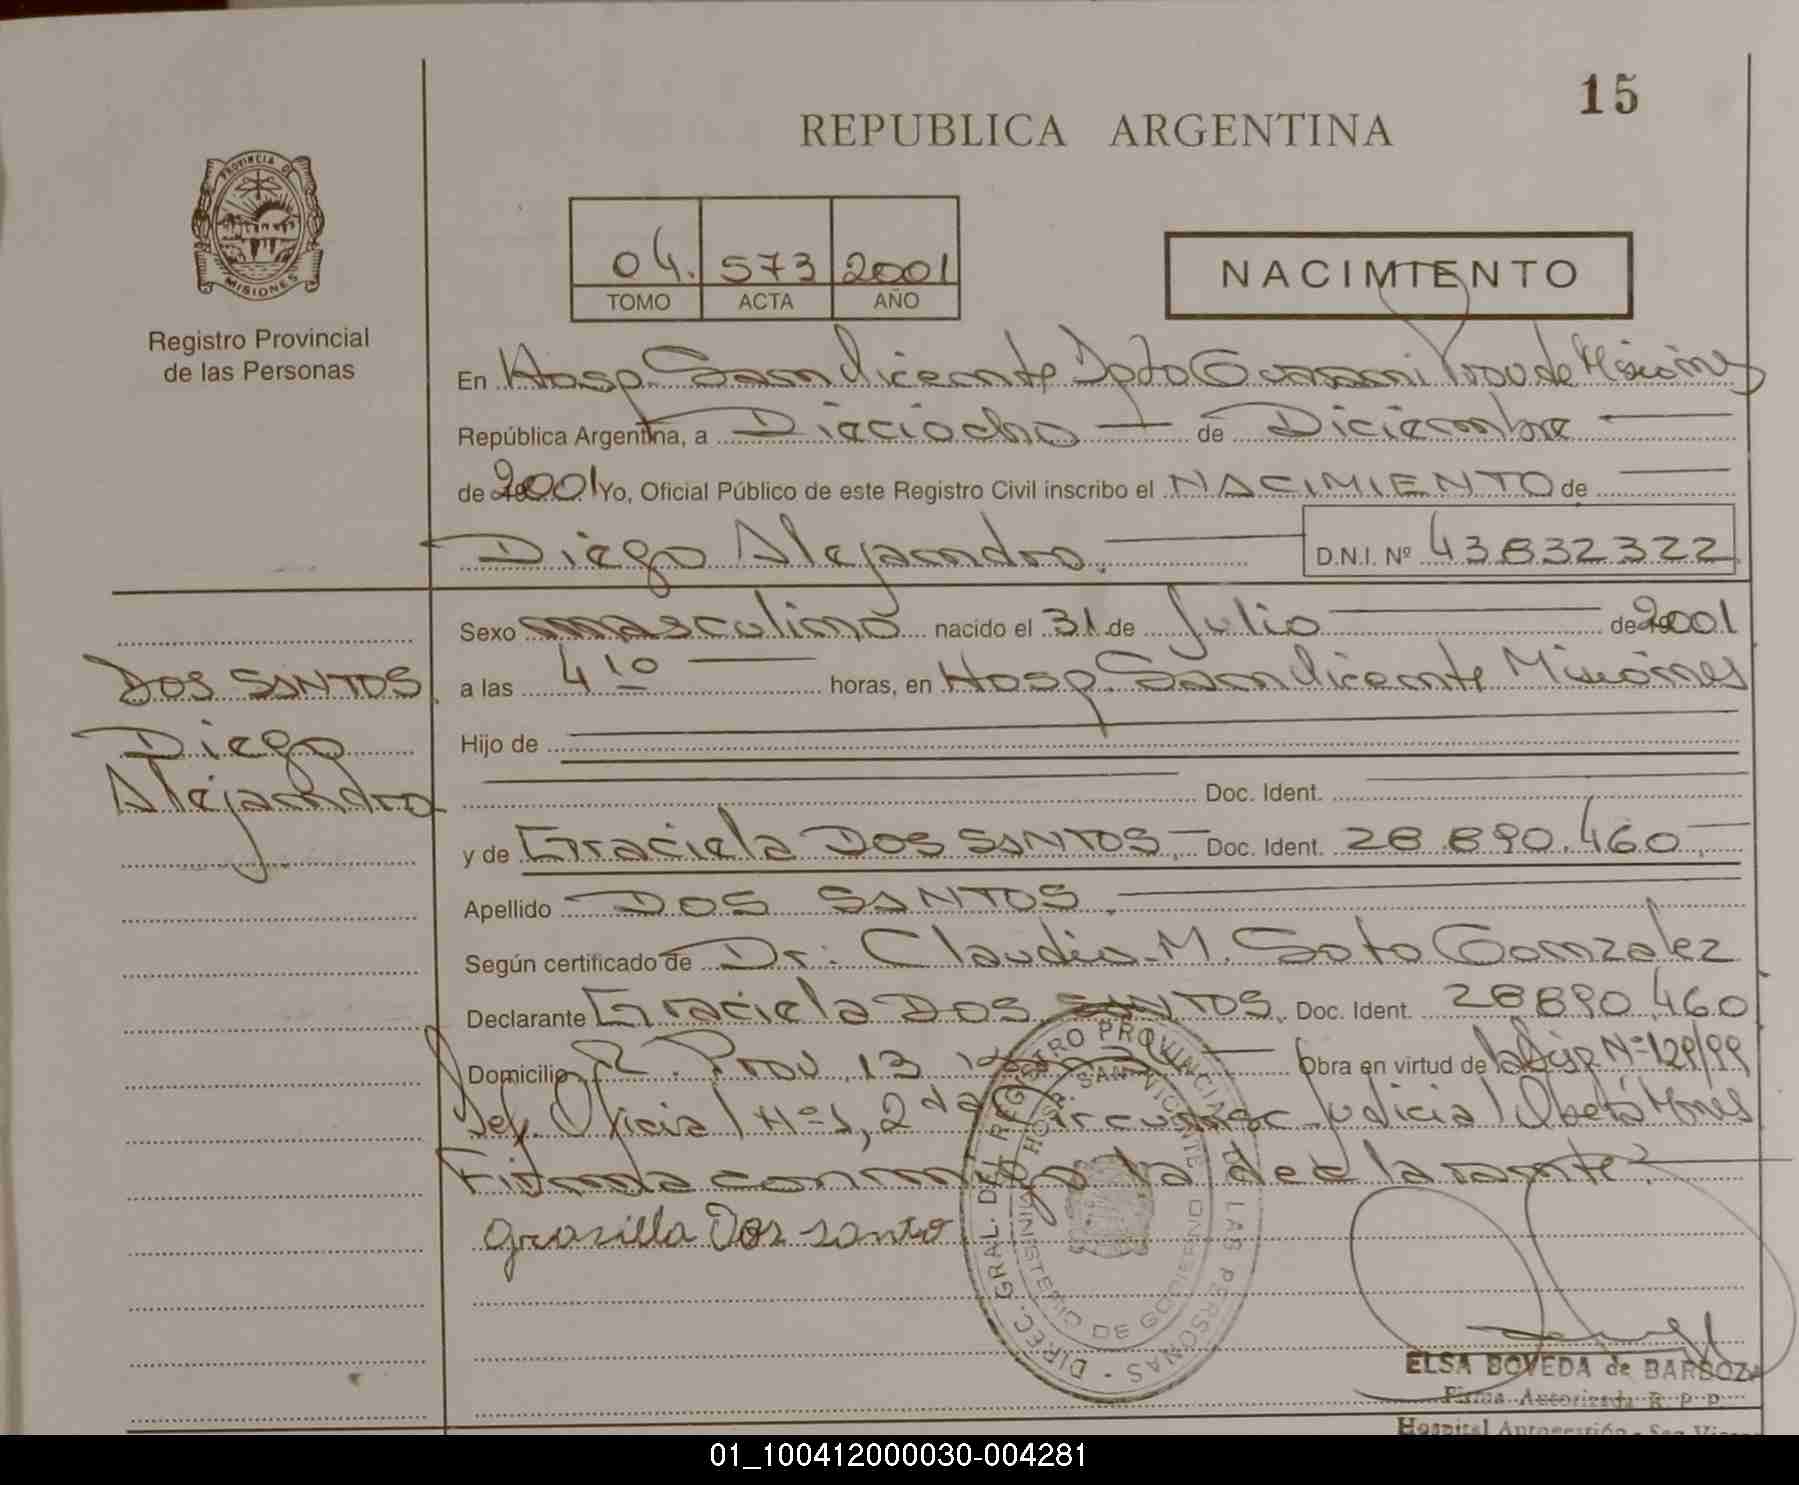 15
REPUBLICA ARGENTINA
PROVINCIA DE
MISIONES
Registro Provincial
de las Personas
04. 573 2001
TOMO ACTA AÑO
NACIMIENTO
En Hosp. San Vicente Dpto Guarani Prov de Misiones
República Argentina, a Dieciocho de Diciembre
de 2001 Yo, Oficial Público de este Registro Civil inscribo el NACIMIENTO de
Diego Alejandro. D.N.I. Nº 43832322
DOS SANTOS
Diego
Alejandro
Sexo masculino nacido el 31 de Julio de 2001
a las 4 10 horas, en Hosp. San Vicente Misiones
Hijo de
Doc. Ident.
y de Graciela DOS SANTOS, Doc. Ident. 28.890.460
Apellido DOS SANTOS.
Según certificado de Dr: Claudio M. Soto Gonzalez
Declarante Graciela DOS SANTOS, Doc. Ident. 28890.460
Domicilio R. Prov 13 Obra en virtud de Nº 129/99
Def. Oficial Nº 1, 2da Circunsc Judicial Oberá Mnes
Firma conmigo la declarante.
grasilla Dos santo
DIREC. GRAL. DEL REGISTRO PROVINCIAL DE LAS PERSONAS
HOSP. SAN VICENTE
MINISTERIO DE GOBIERNO
ELSA BOVEDA de BARBOZA
Firma Autorizada R. P. P.
Hospital Autogestión - San
01_100412000030-004281